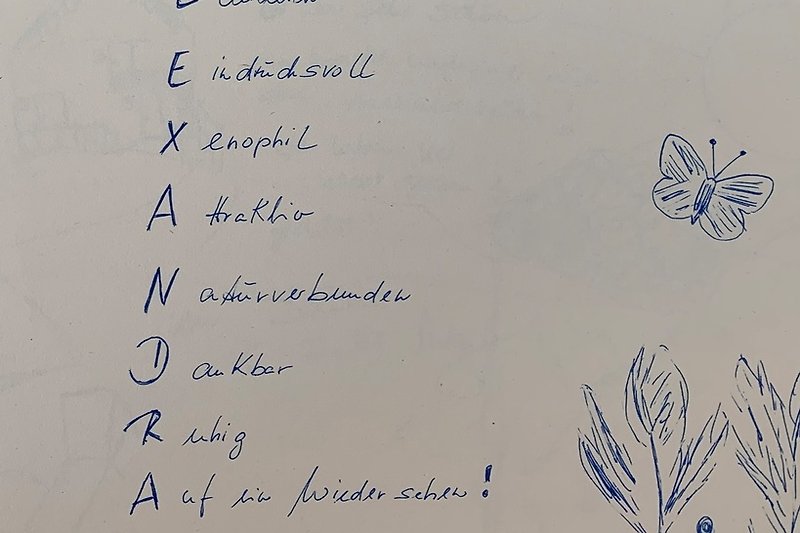 E indrucksvoll
X enophil
A ttraktiv
N aturverbunden
D ankbar
R uhig
A uf ein Wiedersehen!